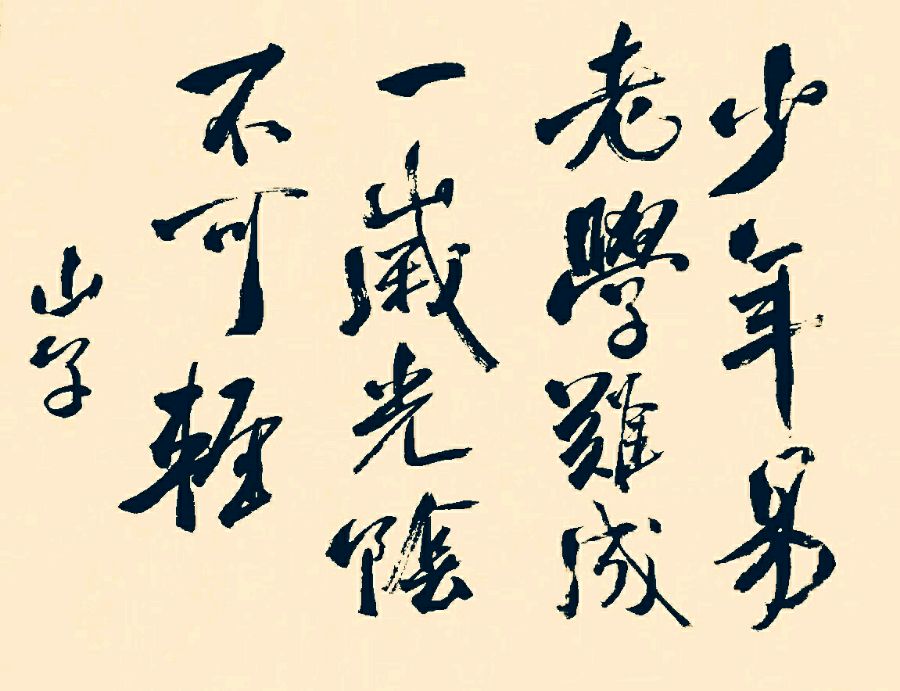 少年易
老學難成
一歲光陰
不可輕